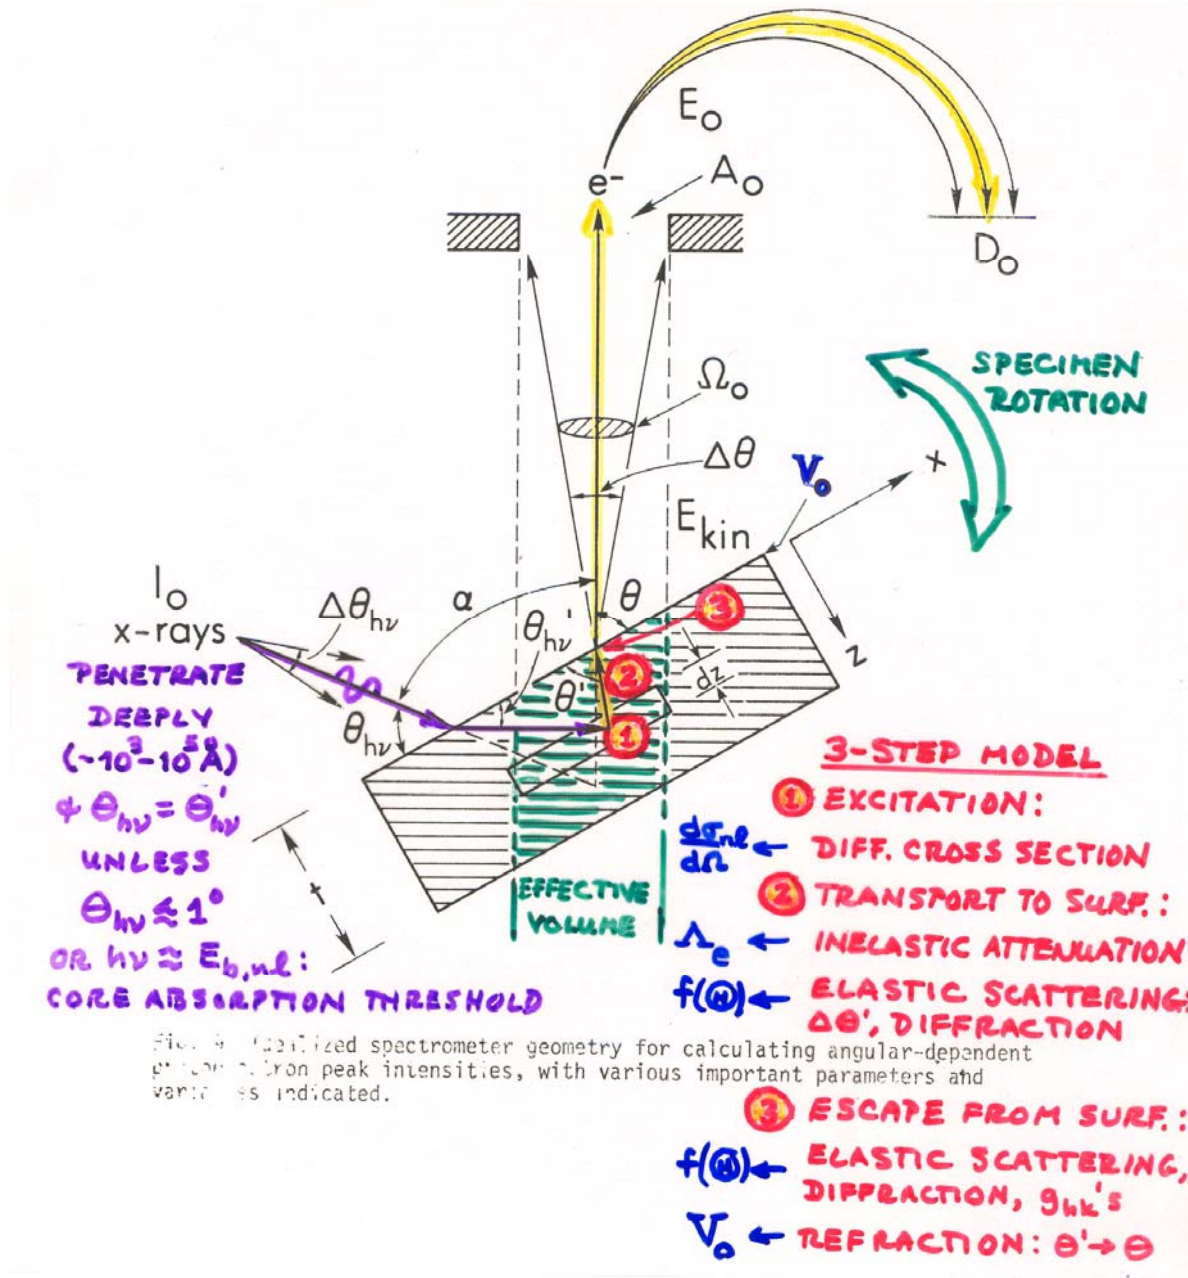 E₀
e⁻
A₀
D₀
Ω₀
SPECIMEN
ROTATION
Δθ
V₀
x
E_kin
I₀
x-rays
Δθ_hν
α
θ_hν'
θ
3
z
dz
2
θ'
1
θ_hν
PENETRATE
DEEPLY
(~10³-10⁵ Å)
& θ_hν = θ_hν'
UNLESS
θ_hν ≲ 1°
OR hν ≈ E_b,nl:
CORE ABSORPTION THRESHOLD
t
EFFECTIVE
VOLUME
3-STEP MODEL
1 EXCITATION:
dσ_nl/dΩ ← DIFF. CROSS SECTION
2 TRANSPORT TO SURF.:
Λ_e ← INELASTIC ATTENUATION
f(Θ) ← ELASTIC SCATTERING,
Δθ', DIFFRACTION
spectrometer geometry for calculating angular-dependent
peak intensities, with various important parameters and
indicated.
3 ESCAPE FROM SURF.:
f(Θ) ← ELASTIC SCATTERING,
DIFFRACTION, g_hk's
V₀ ← REFRACTION: θ'→θ